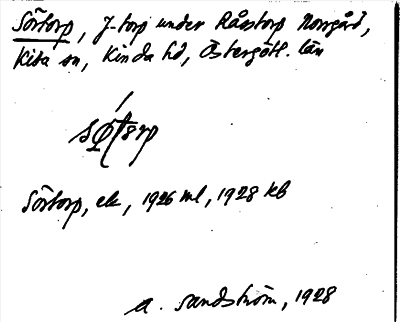 Sörtorp, f-torp under Råstorp Norrgård,
Kisa sn, Kinda hd, Östergötl. län
Sörtorp, ek, 1926 ml, 1928 kb
A. Sandström, 1928